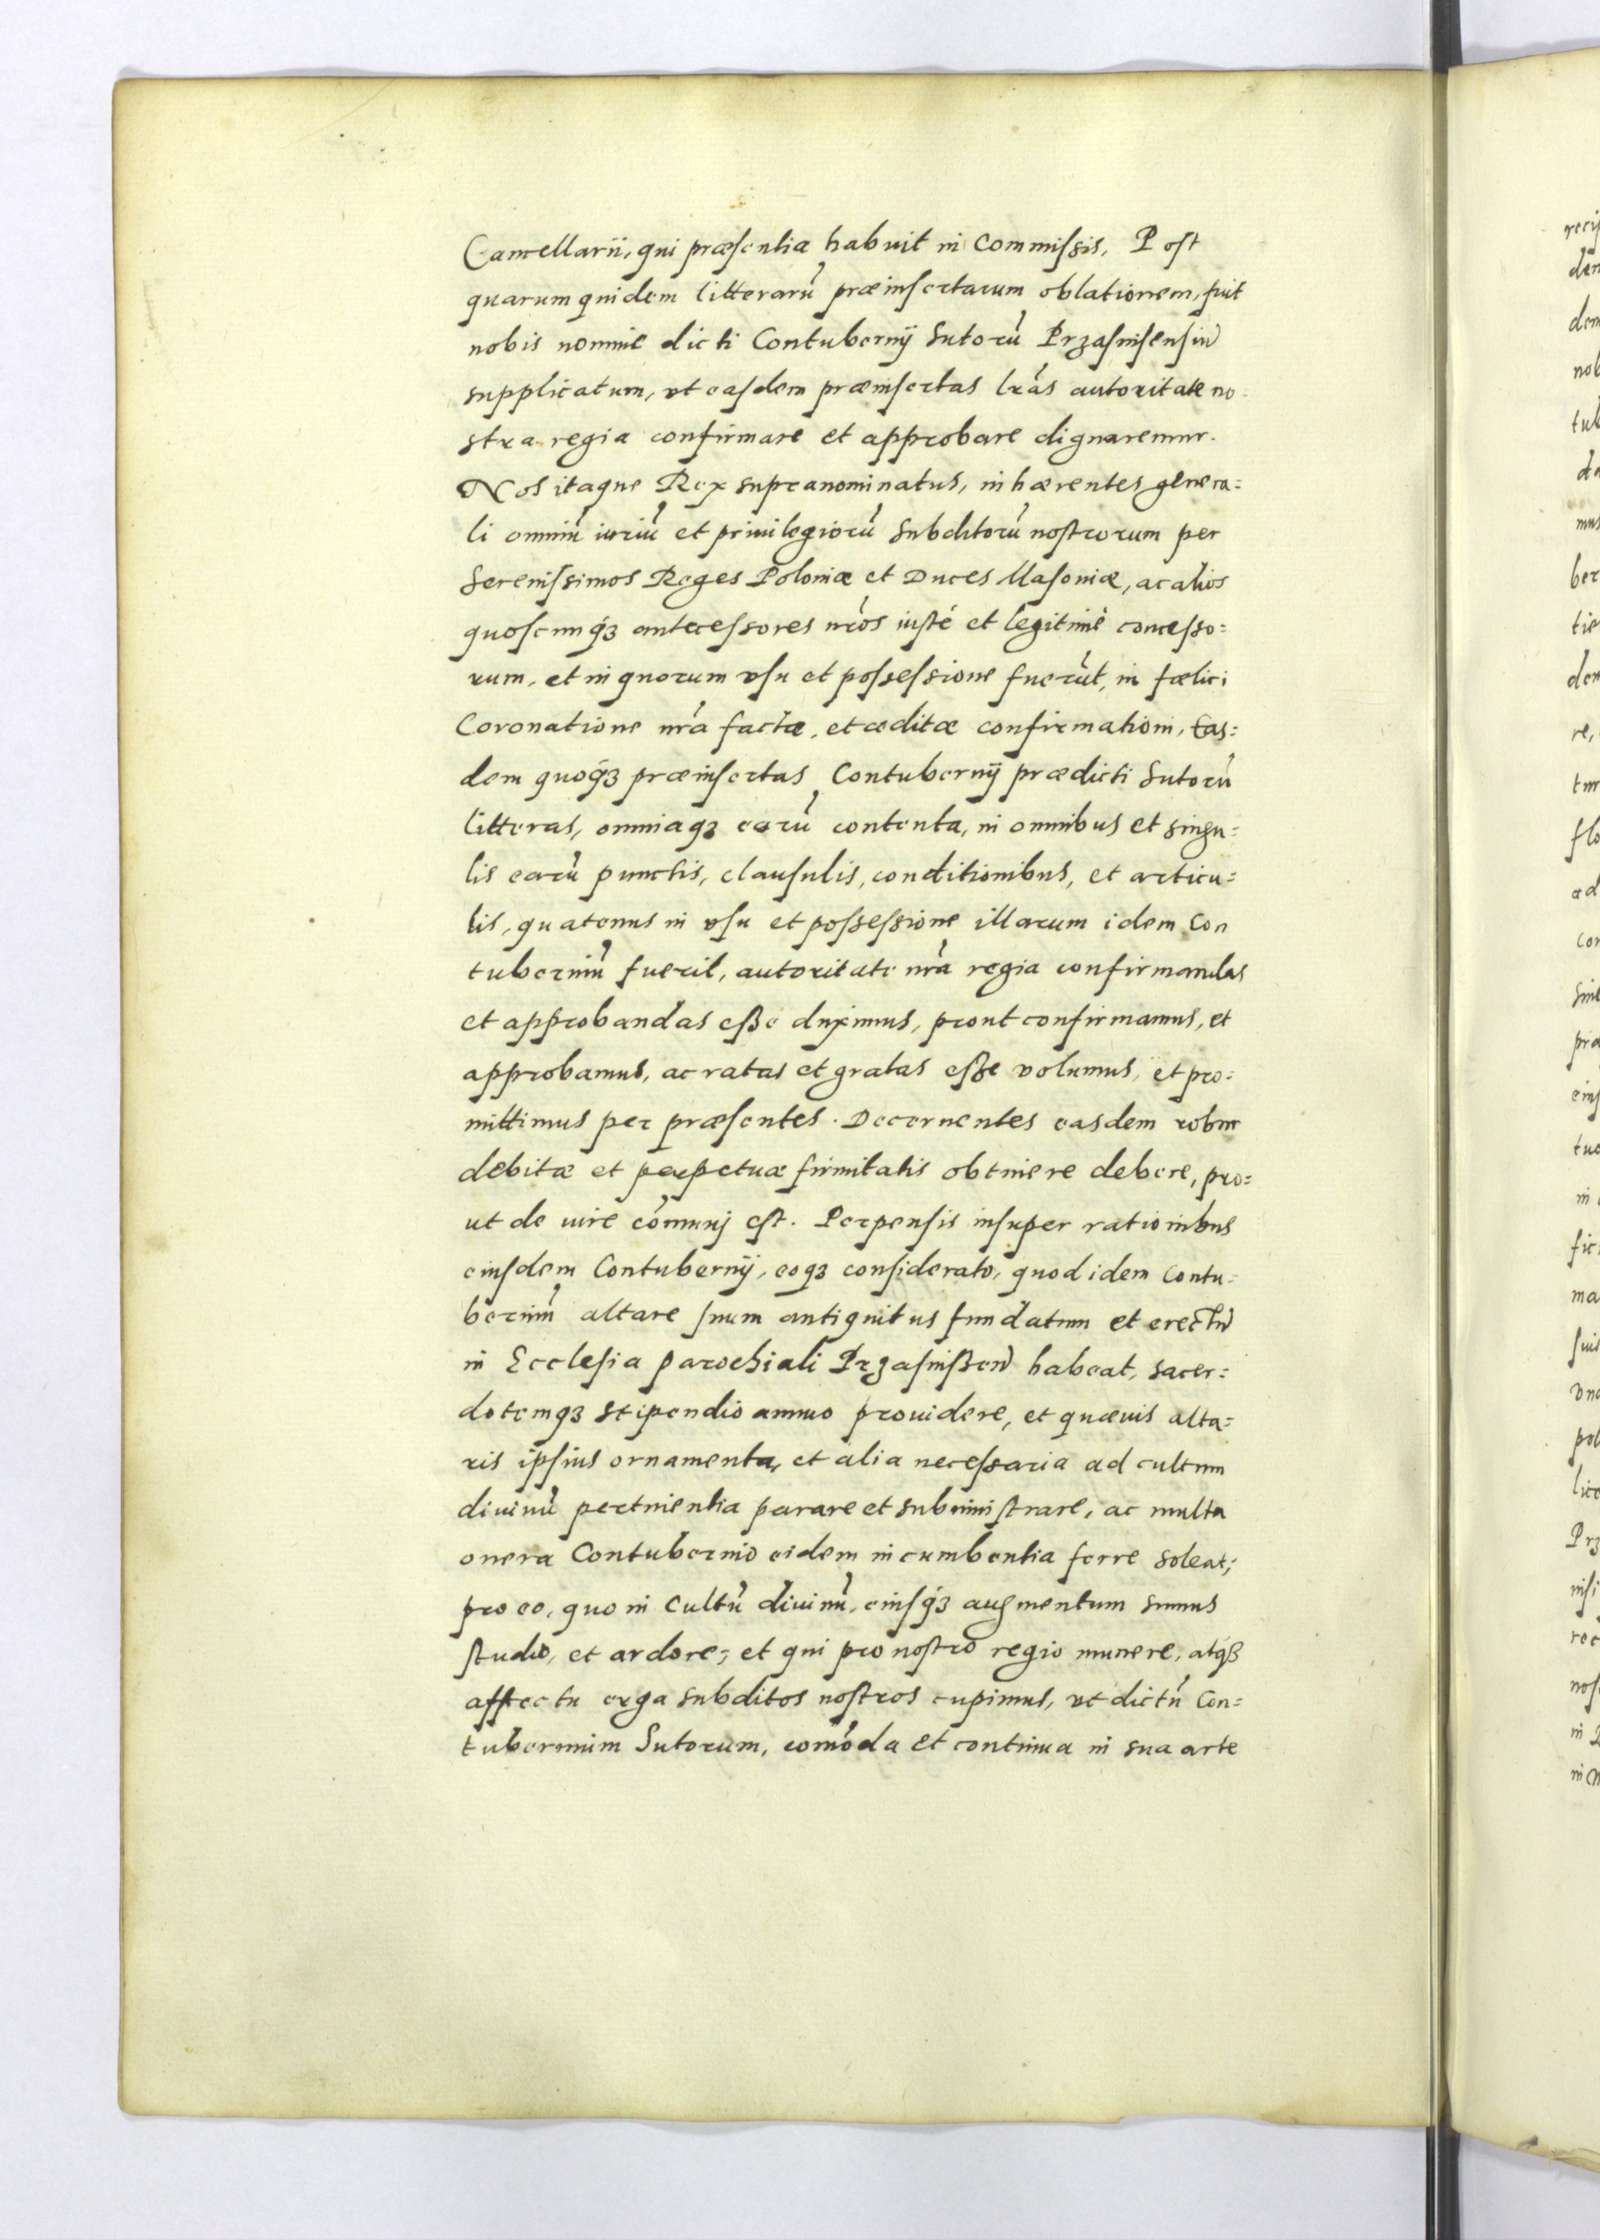 Cancellarii, qui præsentia habuit in Commissis, Post
quarum quidem litterarũ præinsertarum oblationem, fuit
nobis nomine dicti Contubernij Sutorũ Przasnisensiũ
supplicatum, vt easdem præinsertas lrãs autoritate no-
stra regia confirmare et approbare dignaremur.
Nos itaque Rex supranominatus, inhærentes genera=
li omniũ iuriũ et priuilegiorũ subditorũ nostrorum per
Serenissimos Reges Poloniæ et Duces Masoniæ, ac alios
quoscunq́ꝫ antecessores nrõs iusté et legitimè concesso=
rum, et in quorum vsu et possessione fuerũt, in fœlici
Coronatione nrã factæ, et æditæ confirmationi, Eas=
dem quoq́ꝫ præinsertas Contubernij prædicti Sutorũ
litteras, omniaqꝫ earũ contenta, in omnibus et singu=
lis earũ punctis, clausulis, conditionibus, et articu=
lis, quatenus in vsu et possessione illarum idem Con
tuberniũ fuerit, autoritate nrã regia confirmandas
et approbandas eße duximus, prout confirmamus, et
approbamus, ac ratas et gratas eße volumus, et pro=
mittimus per præsentes. Decernentes easdem robur
debitæ et perpetuæ firmitatis obtinere debere, pro=
ut de iure cõmunj est. Perpensis insuper rationibus
eiusdem Contubernij, eoqꝫ considerato, quod idem Contu=
berniũ altare suum antiquitus fundatum et erectũ
in Ecclesia parochiali Przasnißen̄ habeat, sacer=
dotemqꝫ stipendio annuo prouidere, et quæuis alta=
ris ipsius ornamenta, et alia necessaria ad cultum
diuinũ pertinentia parare et subministrare, ac multa
onera Contubernio eidem incumbentia ferre soleat;
pro eo, quo in Cultũ diuinũ, eiusq́ꝫ augmentum sumus
studio, et ardore; et qui pro nostro regio munere, atq́ꝫ
affectu erga subditos nostros cupimus, vt dictũ Con=
tubernium Sutorum, com̃oda et continua in sua arte